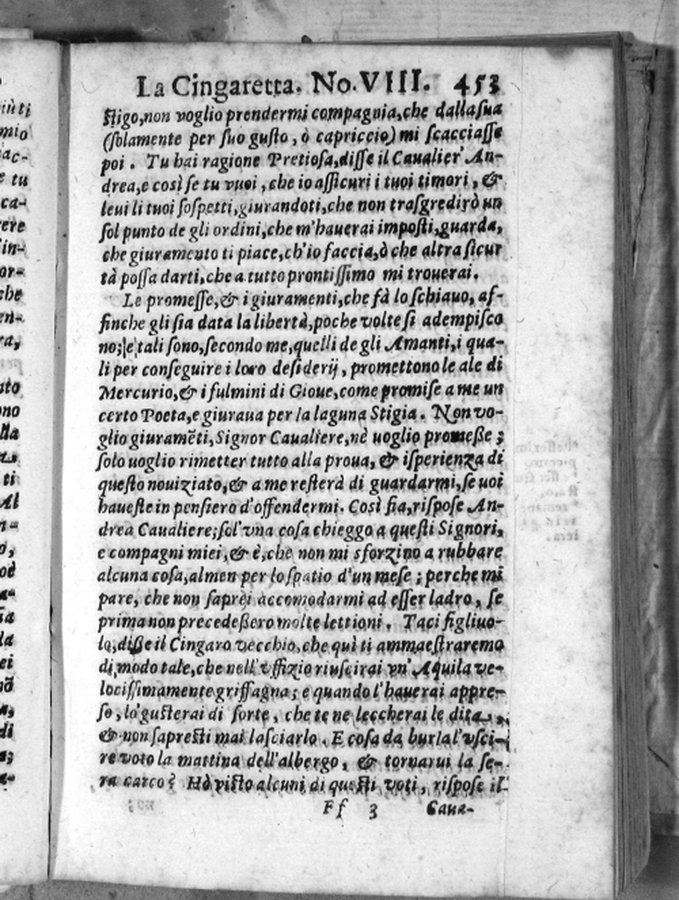 La Cingaretta. No. VIII. 453
ſtigo, non voglio prendermi compagnia, che dalla ſua
(ſolamente per ſuo guſto, ò capriccio) mi ſcacciaſſe
poi. Tu hai ragione Pretioſa, diſſe il Caualier' An-
drea, e così ſe tu vuoi, che io aſſicuri i tuoi timori, &
leui li tuoi ſoſpetti, giurandoti, che non traſgredirò un
ſol punto de gli ordini, che m'hauerai impoſti, guarda,
che giuramento ti piace, ch'io faccia, ò che altra ſicur
tà poſſa darti, che a tutto prontiſſimo mi trouerai.
Le promeſſe, & i giuramenti, che fà lo ſchiauo, af-
finche gli ſia data la libertà, poche volte ſi adempiſco
no; e tali ſono, ſecondo me, quelli de gli Amanti, i qua-
li per conſeguire i loro deſiderij, promettono le ale di
Mercurio, & i fulmini di Gioue, come promiſe a me un
certo Poeta, e giuraua per la laguna Stigia. Non vo-
glio giuramẽti, Signor Caualiere, nè uoglio promeſſe;
ſolo uoglio rimetter tutto alla proua, & iſperienza di
queſto nouiziato, & a me reſterà di guardarmi, ſe uoi
haueſte in penſiero d'offendermi. Così ſia, riſpoſe An-
drea Caualiere; ſol' vna coſa chieggo a queſti Signori,
e compagni miei, & è, che non mi sforzino a rubbare
alcuna coſa, almen per lo ſpatio d'un meſe; perche mi
pare, che non ſaprei accomodarmi ad eſſer ladro, ſe
prima non precedeſſero molte lettioni. Taci figliuo-
lo, diſſe il Cingaro vecchio, che quì ti ammaeſtraremo
di modo tale, che nell'vffizio riuſcirai vn' Aquila ve-
lociſſimamente griffagna; e quando l'hauerai appre-
ſo, lo guſterai di ſorte, che te ne leccherai le dita,
& non ſapreſti mai laſciarlo. E coſa da burla l'vſci-
re voto la mattina dell'albergo, & tornarui la ſe-
ra carco? Hò viſto alcuni di queſti voti, riſpoſe il
Ff 3 Caua-